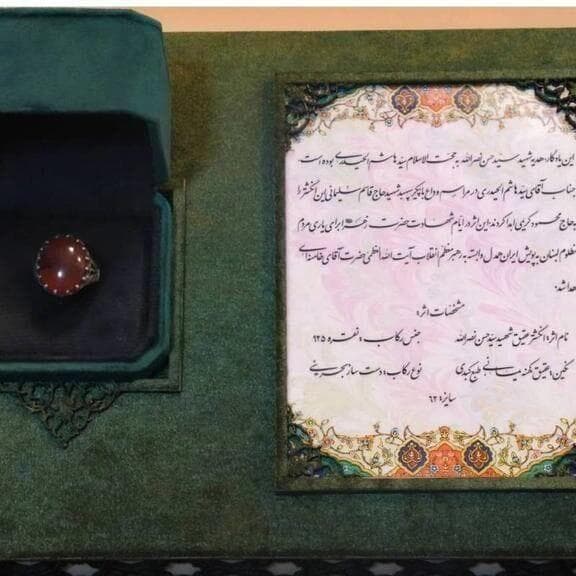 این یادگار، هدیه شهید سید حسن نصرالله به حجت الاسلام سید هاشم الحیدری بوده است
جناب آقای سید هاشم الحیدری در مراسم وداع با پیکر سپهبد شهید حاج قاسم سلیمانی این انگشتر را
به حاج محمود کریمی اهدا کردند، این اثر در ایام شهادت حضرت زهرا برای یاری مردم
مظلوم لبنان به پویش ایران همدل وابسته به رهبر معظم انقلاب آیت الله العظمی حضرت آقای خامنه‌ای
اهدا شد.
مشخصات اثر:
نام اثر: انگشتر عقیق شهید سید حسن نصرالله
جنس رکاب: نقره ۹۲۵
نگین: عقیق تک نه یمانی طبع کبدی
نوع رکاب: دست ساز بحرینی
سایز: ۶۲